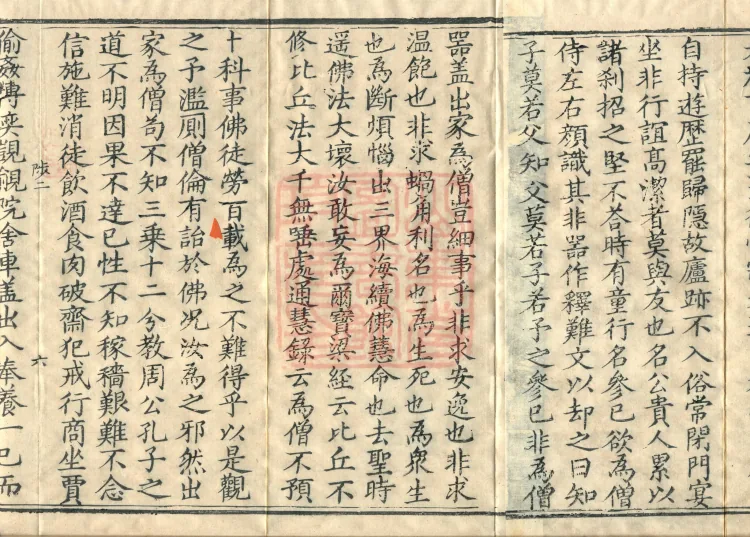 自持遊歷罷歸隱故廬跡不入俗常閉門宴
坐非行誼高潔者莫與友也名公貴人累以
諸刹招之堅不荅時有童行名參已欲為僧
侍左右顔識其非器作釋難文以却之曰知
子莫若父知父莫若子若予之參已非為僧
器盖出家為僧豈細事乎非求安逸也非求
温飽也非求蝸角利名也為生死也為衆生
也為斷煩惱出三界海續佛慧命也去聖時
遥佛法大壞汝敢妄為爾寶梁經云比丘不
修比丘法大千無唾處通慧録云為僧不預
十科事佛徒勞百載為之不難得乎以是觀
之予濫厠僧倫有詒於佛况汝為之邪然出
家為僧苟不知三乗十二分教周公孔子之
道不明因果不達已性不知稼穡艱難不念
信施難消徒飲酒食肉破齋犯戒行商坐賈
陟二 六
偷姦博奕覬覦院舍車盖出入奉養一已而